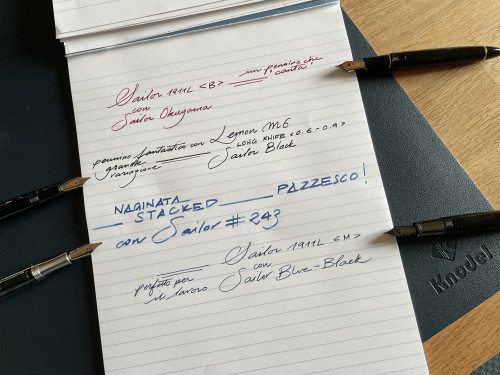 Sailor 1911L <B>
con
Sailor Okuyama
un pennino che
canta!
pennino fantastico con Lemon M6
grande
variazione
LONG KNIFE <0.6-0.9>
Sailor Black
NAGINATA
STACKED
PAZZESCO!
con Sailor #243
Sailor 1911L <M>
con
Sailor Blue-Black
perfetto per
il lavoro
Knodel